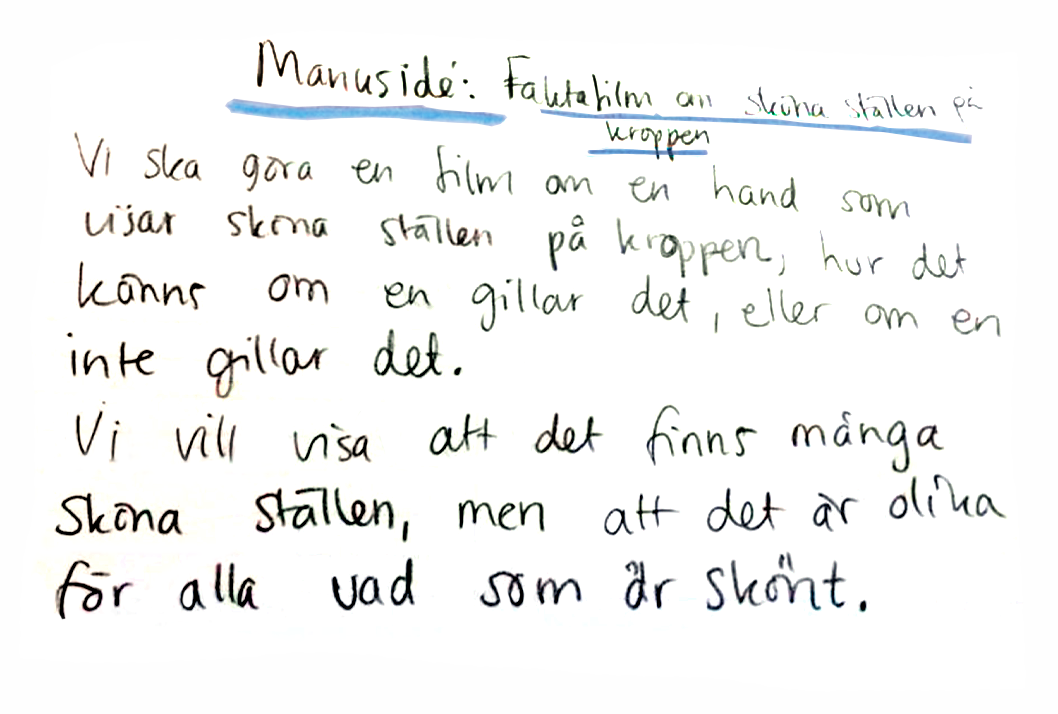 Manusidé: Faktafilm om sköna ställen på
kroppen
Vi ska göra en film om en hand som
visar sköna ställen på kroppen, hur det
känns om en gillar det, eller om en
inte gillar det.
Vi vill visa att det finns många
sköna ställen, men att det är olika
för alla vad som är skönt.